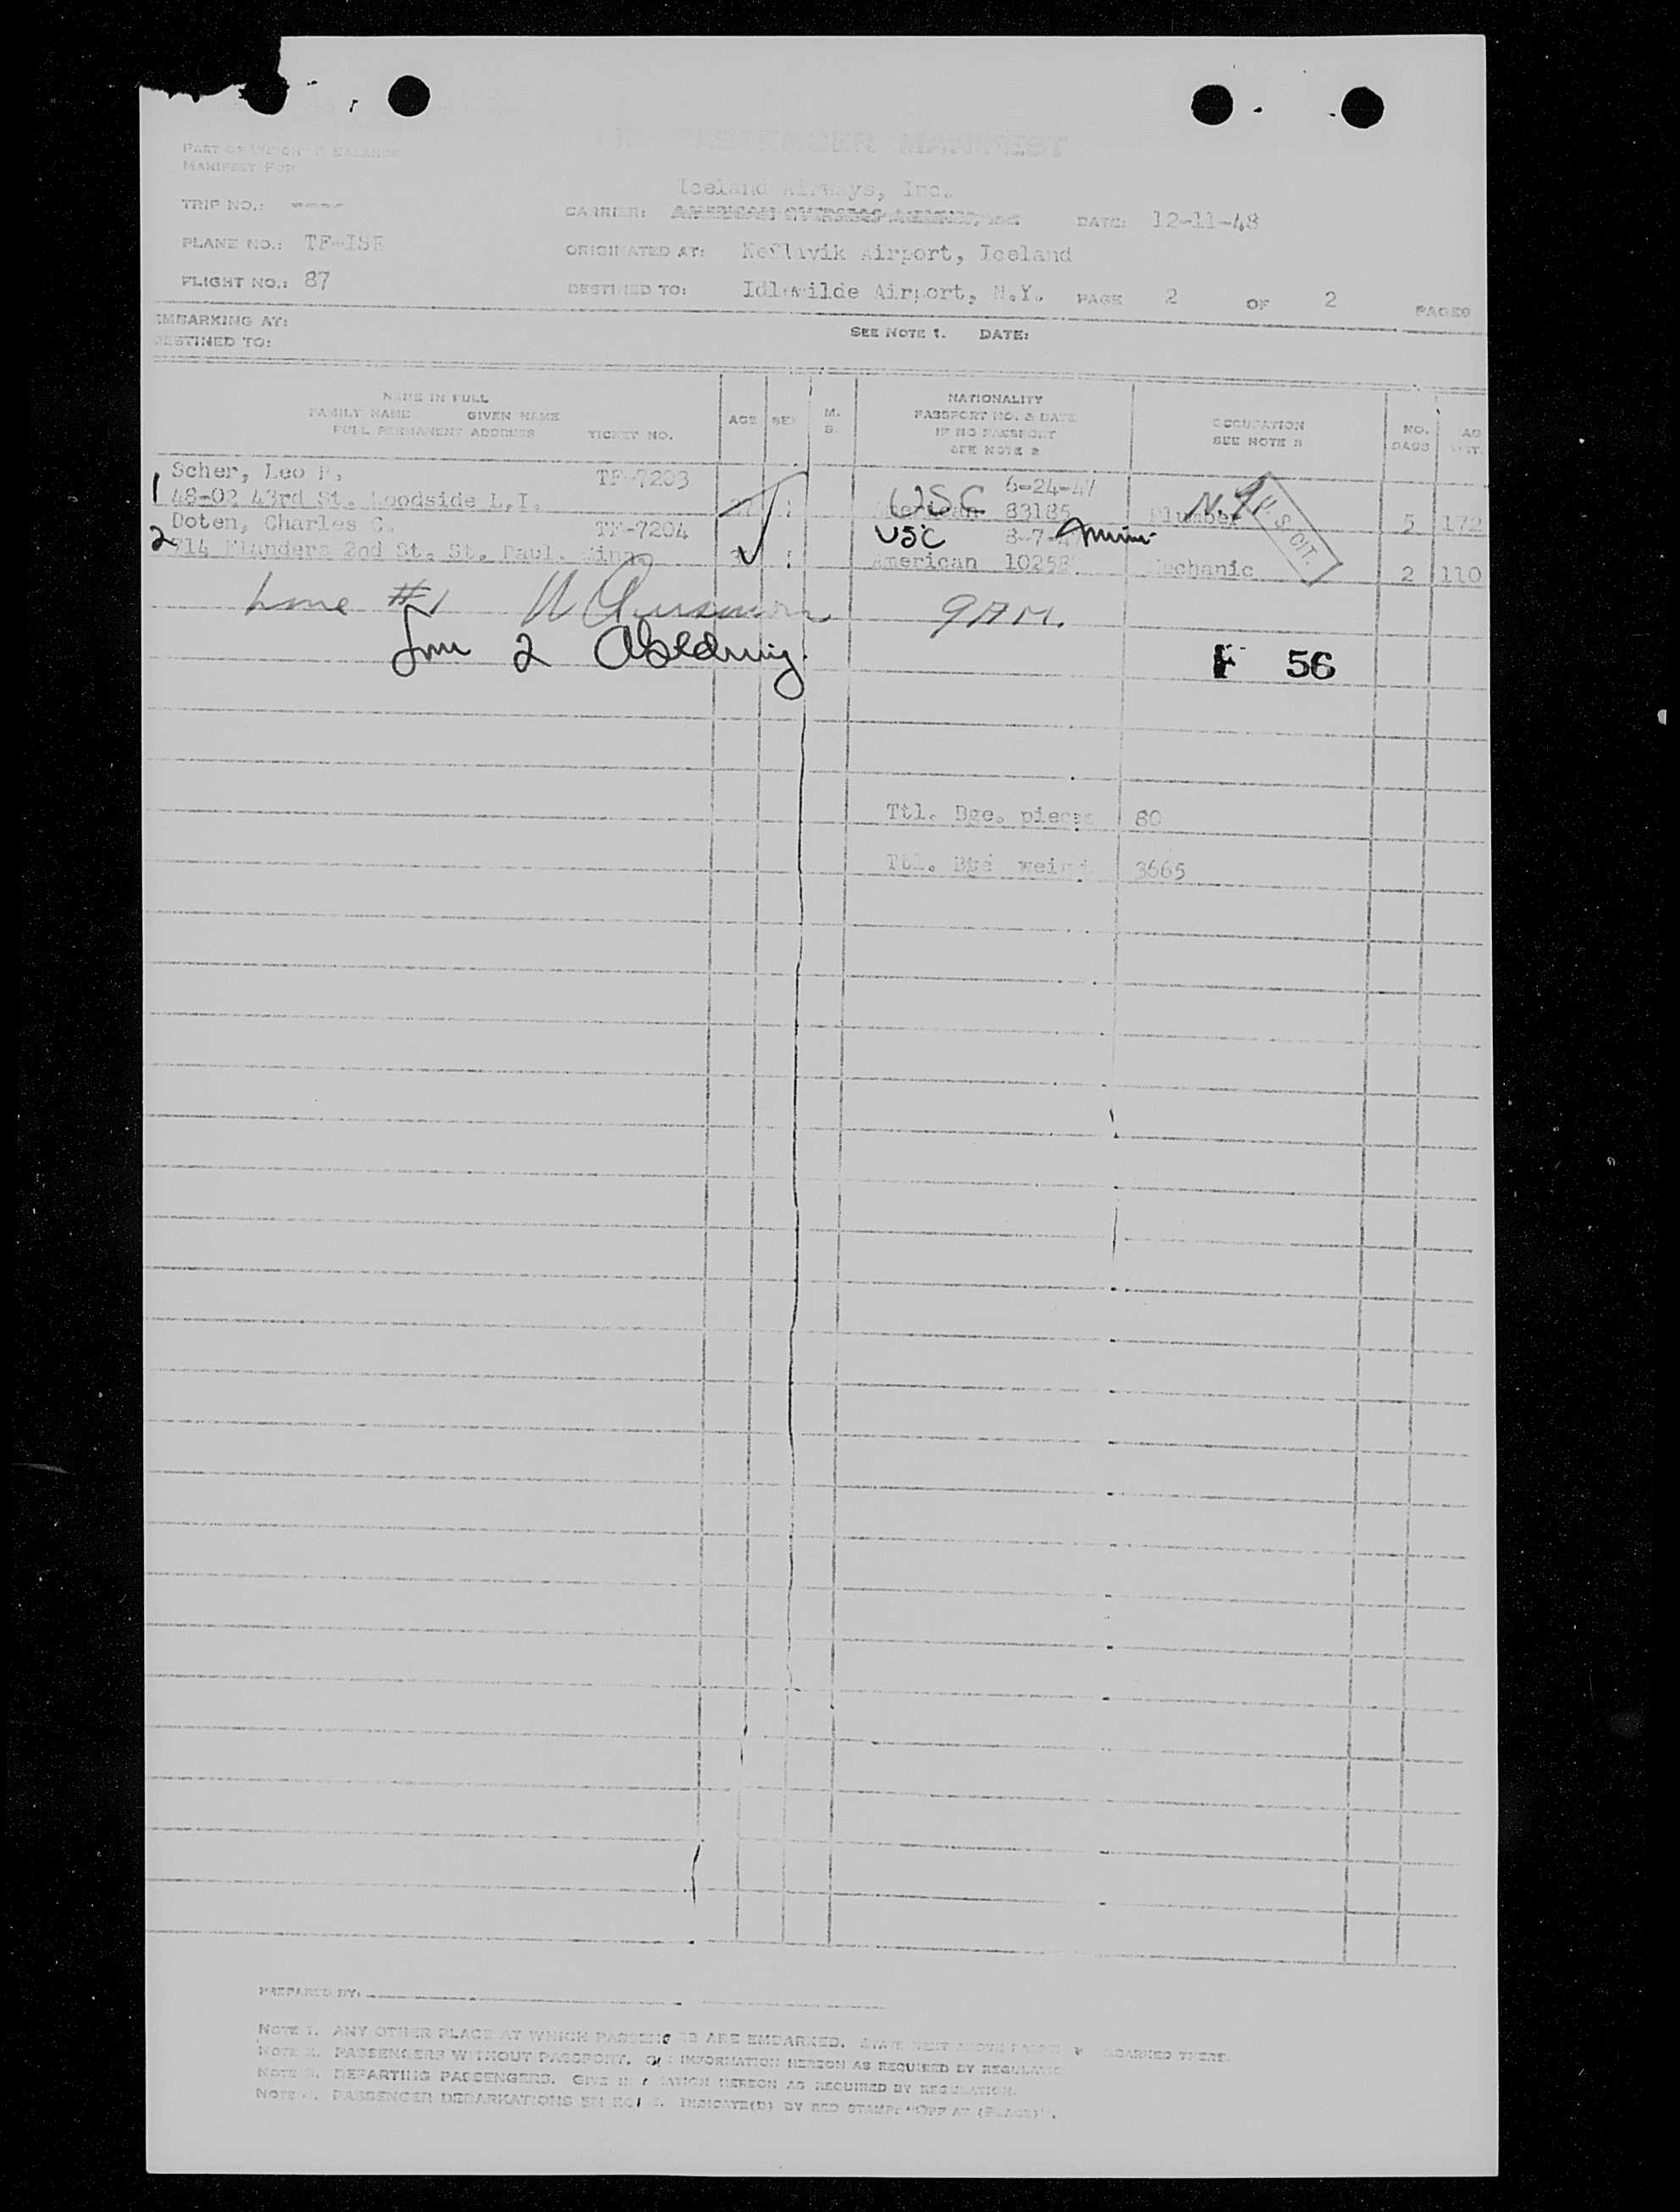 PASSENGER MANIFEST
PART OF WEIGHT & BALANCE
MANIFEST FOR
Iceland Airways, Inc.
TRIP NO.: ----
CARRIER: AMERICAN OVERSEAS AIRLINES, INC. DATE: 12-11-48
PLANE NO.: TF-ISE
ORIGINATED AT: Keflavik Airport, Iceland
FLIGHT NO.: 87
DESTINED TO: Idlewilde Airport, N.Y. PAGE 2 OF 2 PAGES
EMBARKING AT:
SEE NOTE 1. DATE:
DESTINED TO:
NAME IN FULL
FAMILY NAME GIVEN NAME
FULL PERMANENT ADDRESS TICKET NO.
AGE SEX M. S.
NATIONALITY
PASSPORT NO. & DATE
IF NO PASSPORT
SEE NOTE 2
OCCUPATION
SEE NOTE 3
NO. BAGS
Scher, Leo TF-7203 6-24-47
1 48-02 43rd St. Woodside L.I. USC American 83185 Plumber N.Y. 5 172
Doten, Charles C. TF-7204 USC 8-7- Minn
2 714 Flanders 2nd St. St. Paul. Minn American Mechanic 2 110
Line #1 9 AM.
Line 2
F 56
Ttl. Bge. pieces 80
Ttl. Bge weight 3665
PREPARED BY:
NOTE 1. ANY OTHER PLACE AT WHICH PASSENGERS ARE EMBARKED. EMBARKED THERE.
NOTE 2. PASSENGERS WITHOUT PASSPORT. GIVE INFORMATION HEREON AS REQUIRED BY REGULATION
NOTE 3. DEPARTING PASSENGERS. GIVE INFORMATION HEREON AS REQUIRED BY REGULATION.
NOTE 4. PASSENGER DEBARKATIONS EN ROUTE. INDICATE(D) BY RED STAMP: "OFF AT (PLACE)".